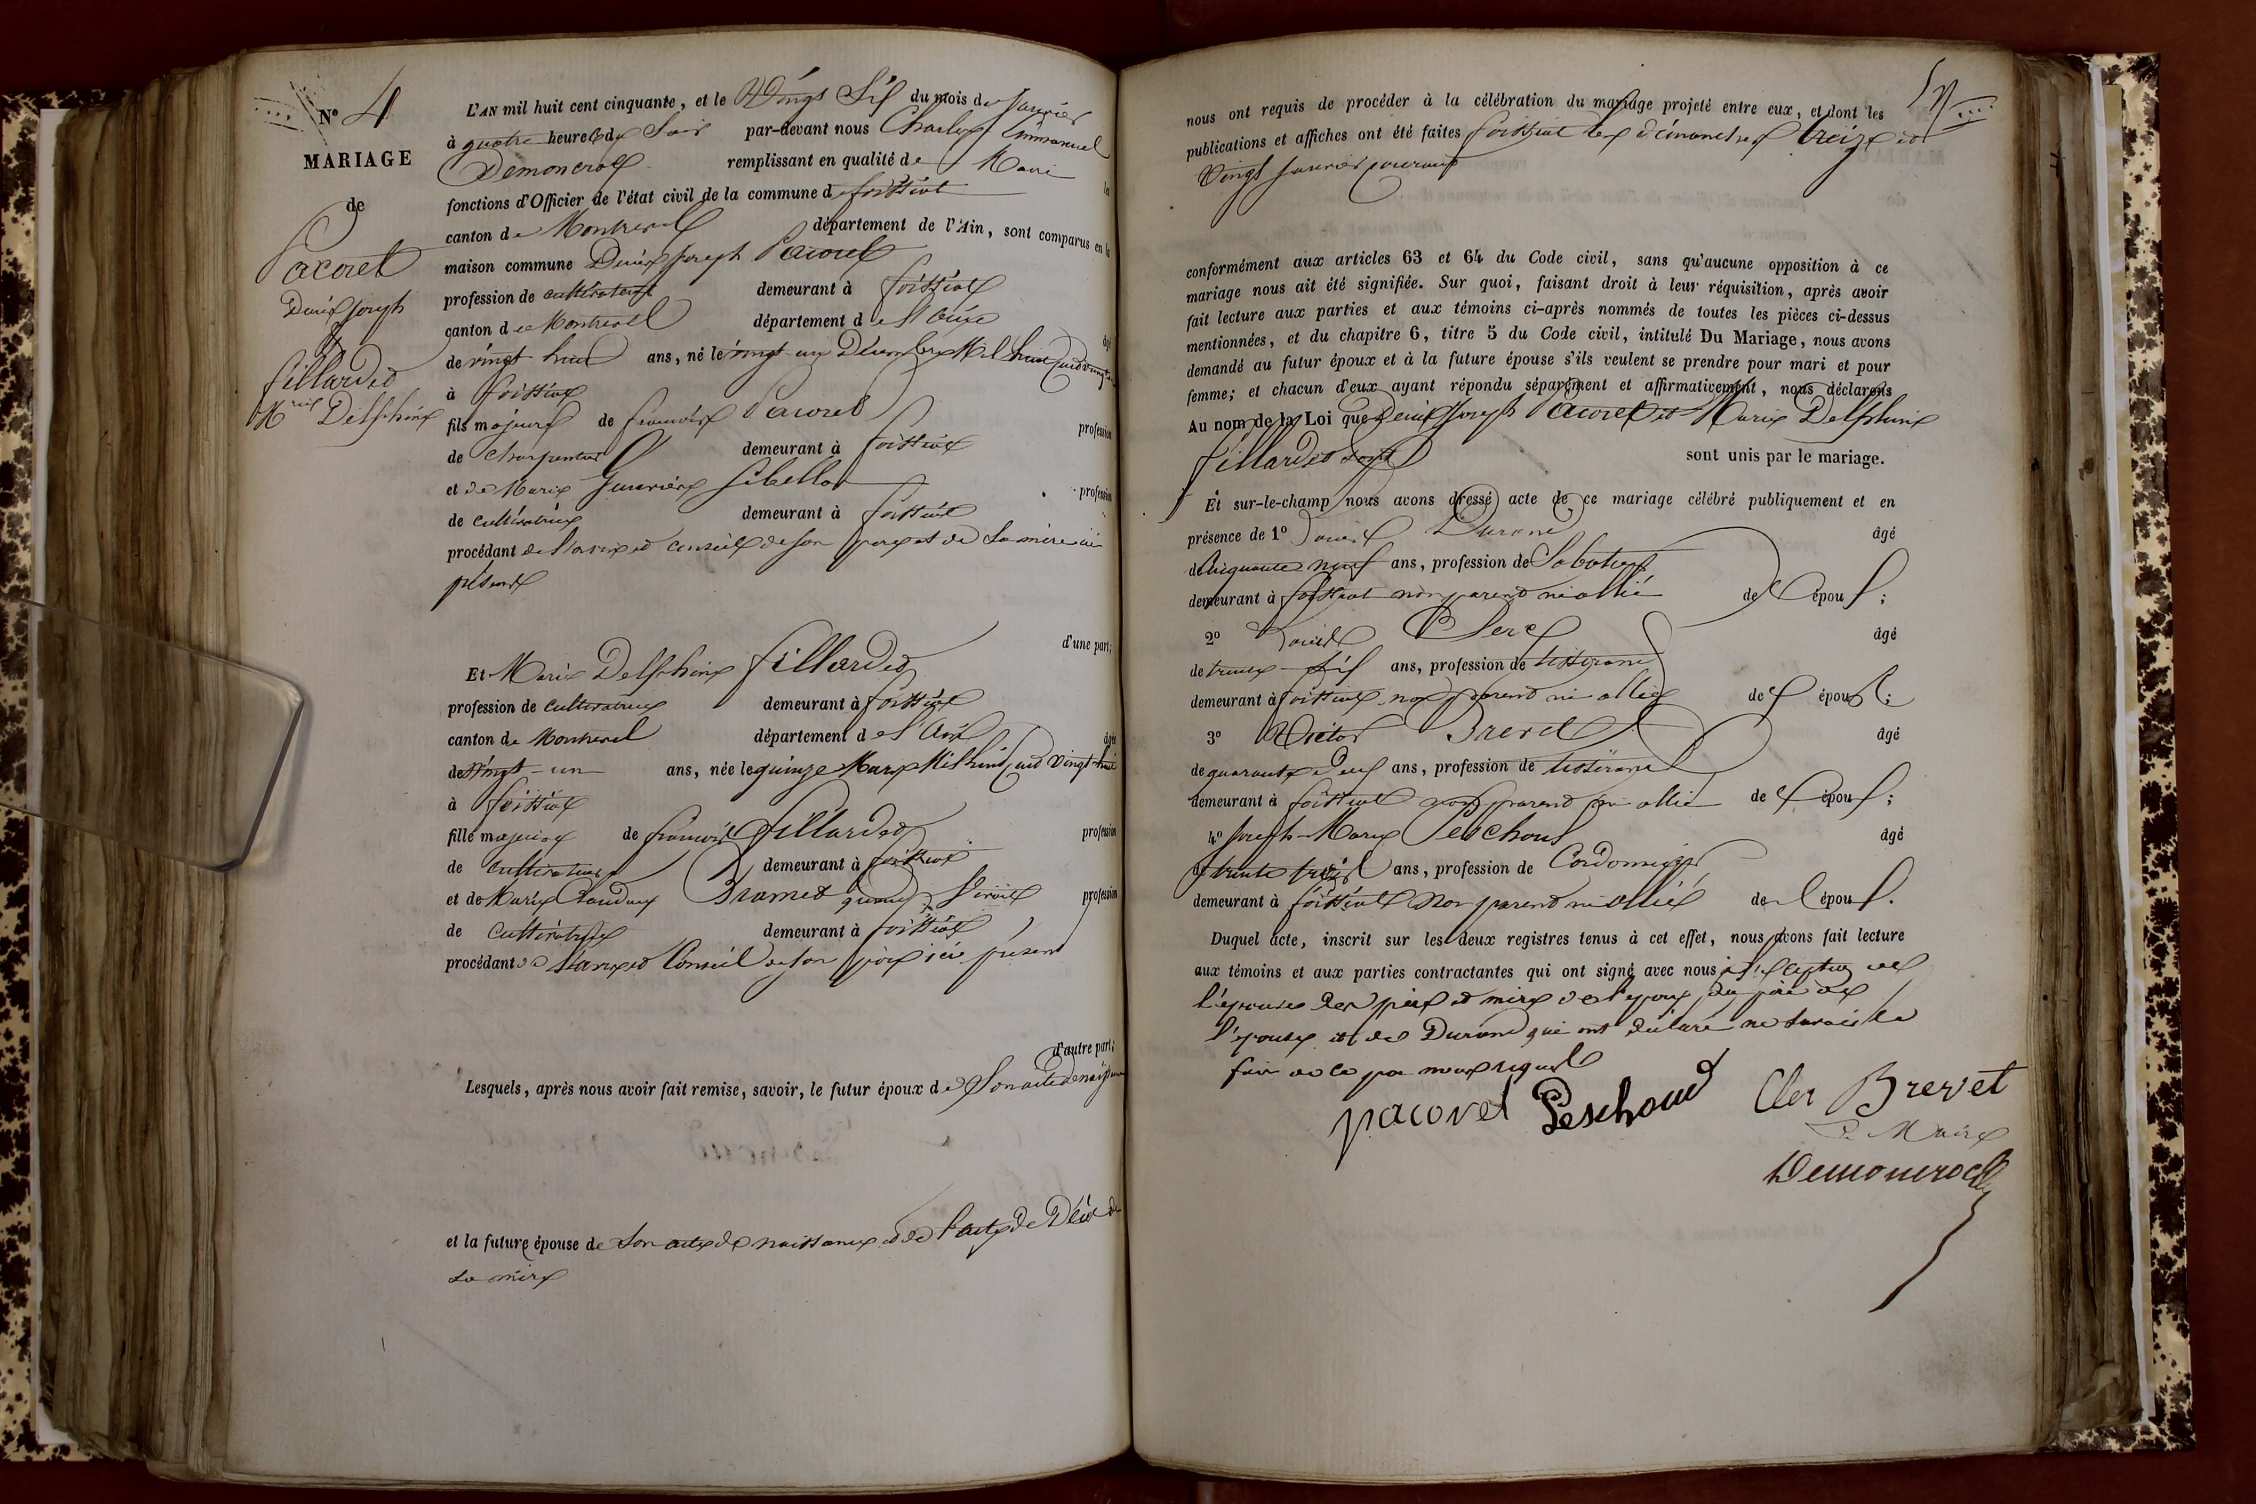 N° 4
MARIAGE
de
Pacoret
Denis Joseph
&
Fillardet
Mrie Delphine
L'AN mil huit cent cinquante, et le Vingt Six du mois de Janvier
à quatre heures du Soir par-devant nous Charles Emmanuel
Demoncroc remplissant en qualité de Maire la
fonctions d'Officier de l'état civil de la commune de foissiat
canton de Montrevel département de l'Ain, sont comparus en la
maison commune Denis Joseph Pacoret
profession de cultivateur demeurant à foissiat
canton de Montrevel département de l'Ain âgé
de vingt huit ans, né le vingt un Décembre Mil huit cent vingt
à foissiat
fils majeur de françois Pacoret profession
de charpentier demeurant à foissiat
et de Marie Genevieve Sibellas profession
de cultivatrice demeurant à foissiat
procédant de l'avis et conseil de son pere et de Sa mère ici
présents
d'une part;
Et Marie Delphine fillardet
profession de cultivatrice demeurant à foissiat
canton de Montrevel département de l'Ain âgée
de Vingt-un ans, née le quinze Mars Mil huit cent Vingt-huit
à foissiat
fille majeure de françois fillardet profession
de cultivateur demeurant à foissiat
et de Marie Claudine Bramet quand vivait profession
de cultivatrice demeurant à foissiat
procédant de l'avis et Conseil de son père ici présent
d'autre part;
Lesquels, après nous avoir fait remise, savoir, le futur époux de Son acte de naissance
et la future épouse de Son acte de naissance et de l'acte de Décès de
sa mère
nous ont requis de procéder à la célébration du mariage projeté entre eux, et dont les
publications et affiches ont été faites foissiat les dimanches treize et
Vingt Janvier courant
conformément aux articles 63 et 64 du Code civil, sans qu'aucune opposition à ce
mariage nous ait été signifiée. Sur quoi, faisant droit à leur réquisition, après avoir
fait lecture aux parties et aux témoins ci-après nommés de toutes les pièces ci-dessus
mentionnées, et du chapitre 6, titre 5 du Code civil, intitulé Du Mariage, nous avons
demandé au futur époux et à la future épouse s'ils veulent se prendre pour mari et pour
femme; et chacun d'eux ayant répondu séparément et affirmativement, nous déclarons
Au nom de la Loi que Denis Joseph Pacoret et Marie Delphine
fillardet
sont unis par le mariage.
Et sur-le-champ nous avons dressé acte de ce mariage célébré publiquement et en
présence de 1° Louis Durand âgé
de Cinquante neuf ans, profession de Sabotier
demeurant à foissiat non parent ni allié de l'époux;
2° Louis Perex âgé
de trente-six ans, profession de tisserand
demeurant à foissiat non parent ni allié des époux;
3° Victor Brevet âgé
de quarante deux ans, profession de tisserand
demeurant à foissiat non parent ni allié des époux;
4° Joseph-Marie Peschoud âgé
de trente trois ans, profession de Cordonnier
demeurant à foissiat Non parent ni allié de l'époux.
Duquel acte, inscrit sur les deux registres tenus à cet effet, nous avons fait lecture
aux témoins et aux parties contractantes qui ont signé avec nous à l'exception de
l'épouse des père et mère de l'époux, du père de
l'épouse et de Durand qui ont déclaré ne Savoir le
faire de ce par nous requis
pacoret Peschoud Cler Brevet
Le Maire
Demoncroc